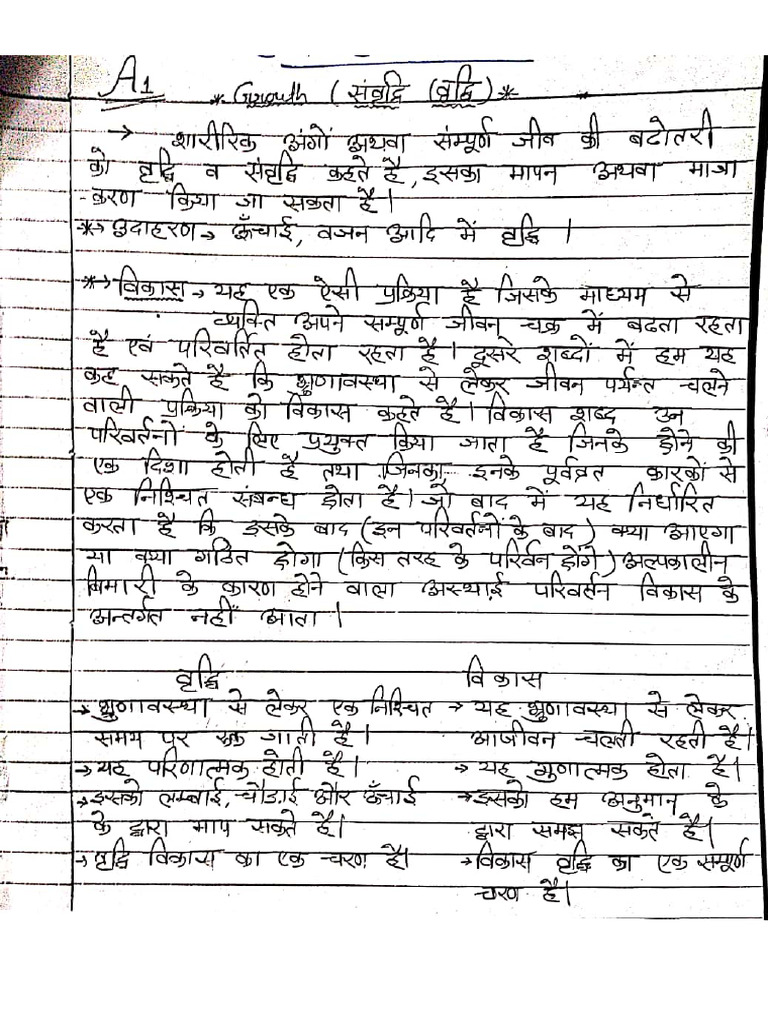 A1
* Growth ( संवृद्धि (वृद्धि) *
→ शारीरिक अंगों अथवा संम्पूर्ण जीव की बढोतरी
को वृद्धि व संवृद्धि कहते है, इसका मापन अथवा मात्रा
- करण किया जा सकता है।
** उदाहरण → ऊँचाई, वजन आदि में वृद्धि ।
*→ विकास → यह एक ऐसी प्रक्रिया है जिसके माध्यम से
व्यक्ति अपने सम्पूर्ण जीवन चक्र में बढता रहता
है एवं परिवर्तित होता रहता है। दुसरे शब्दों में हम यह
कह सकते है कि भ्रुणावस्था से लेकर जीवन पर्यन्त चलने
वाली प्रक्रिया को विकास कहते है। विकास शब्द उन
परिवर्तनों के लिए प्रयुक्त किया जाता है जिनके होने की
एक दिशा होती है तथा जिनका इनके पूर्वव्रत कारकों से
एक निश्चित संबन्ध होता है। जो बाद में यह निर्धारित
करता है कि इसके बाद (इन परिवर्तनों के बाद) क्या आएगा
या क्या गठित होगा (किस तरह के परिर्वन होंगे) अल्पकालीन
बिमारी के कारण होने वाला अस्थाई परिवर्तन विकास के
अन्तर्गत नहीं आता ।
वृद्धि विकास
→ भ्रुणावस्था से लेकर एक निश्चित → यह भ्रुणावस्था से लेकर
समय पर रूक जाती है। आजीवन चलती रहती है।
→ यह परिणात्मक होती है। → यह गुणात्मक होता है।
→ इसको लम्बाई, चौडाई और ऊँचाई → इसको हम अनुमान के
के द्वारा माप सकते है। द्वारा समझ सकते है।
→ वृद्धि विकास का एक चरण है। → विकास वृद्धि का एक सम्पूर्ण
चरण है।